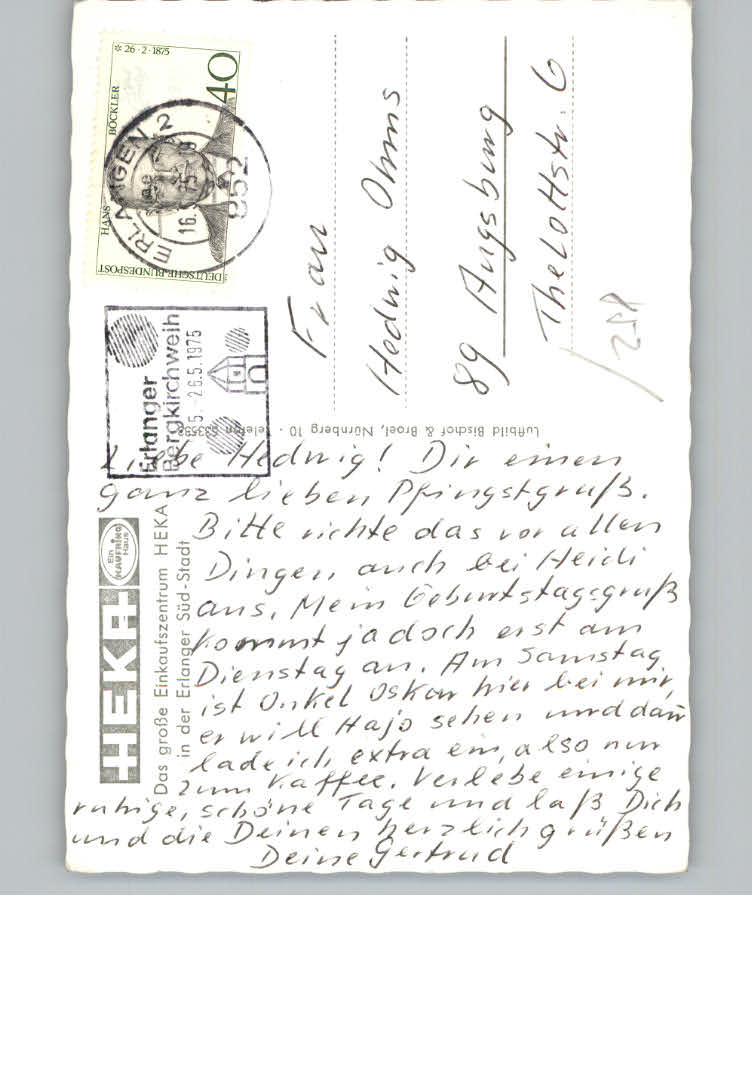 * 26·2·1875
40
HANS BÖCKLER
DEUTSCHE BUNDESPOST
ERLANGEN 2
852
Erlanger
Bergkirchweih
5.-26.5.1975
Frau
Hedwig Ohms
89 Augsburg
Thelottstr. 6
258
Luftbild Bischof & Broel, Nürnberg 10 · Telefon
HEKA
Ein KAUFRING Haus
Das große Einkaufszentrum HEKA
in der Erlanger Süd-Stadt
Liebe Hedwig! Dir einen
ganz lieben Pfingstgruß.
Bitte richte das vor allen
Dingen, auch bei Heidi
aus. Mein Geburtstagsgruß
kommt jadoch erst am
Dienstag an. Am Samstag
ist Onkel Oskar hier bei mir,
er will Hajo sehen und dañ
lade ich extra ein, also nur
zum Kaffee. Verlebe einige
ruhige, schöne Tage und laß Dich
und die Deinen herzlich grüßen
Deine Gertrud